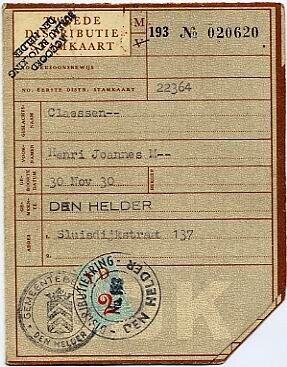 TWEEDE
DISTRIBUTIE-
STAMKAART
M
V
193 № 020620
NO. PERSOONSBEWIJS
NO. EERSTE DISTR. STAMKAART
22364
GESLACHTS-
NAAM
Claessen--
VOOR-
NAMEN
Henri Joannes M--
DATUM
30 Nov 30
BEROEP
DEN HELDER
ADRES
Sluisdijkstraat 137
GEMEENTEBE
DEN HELDER
DISTRIBUTIEKRING
DEN HELDER
No. 193
2
K